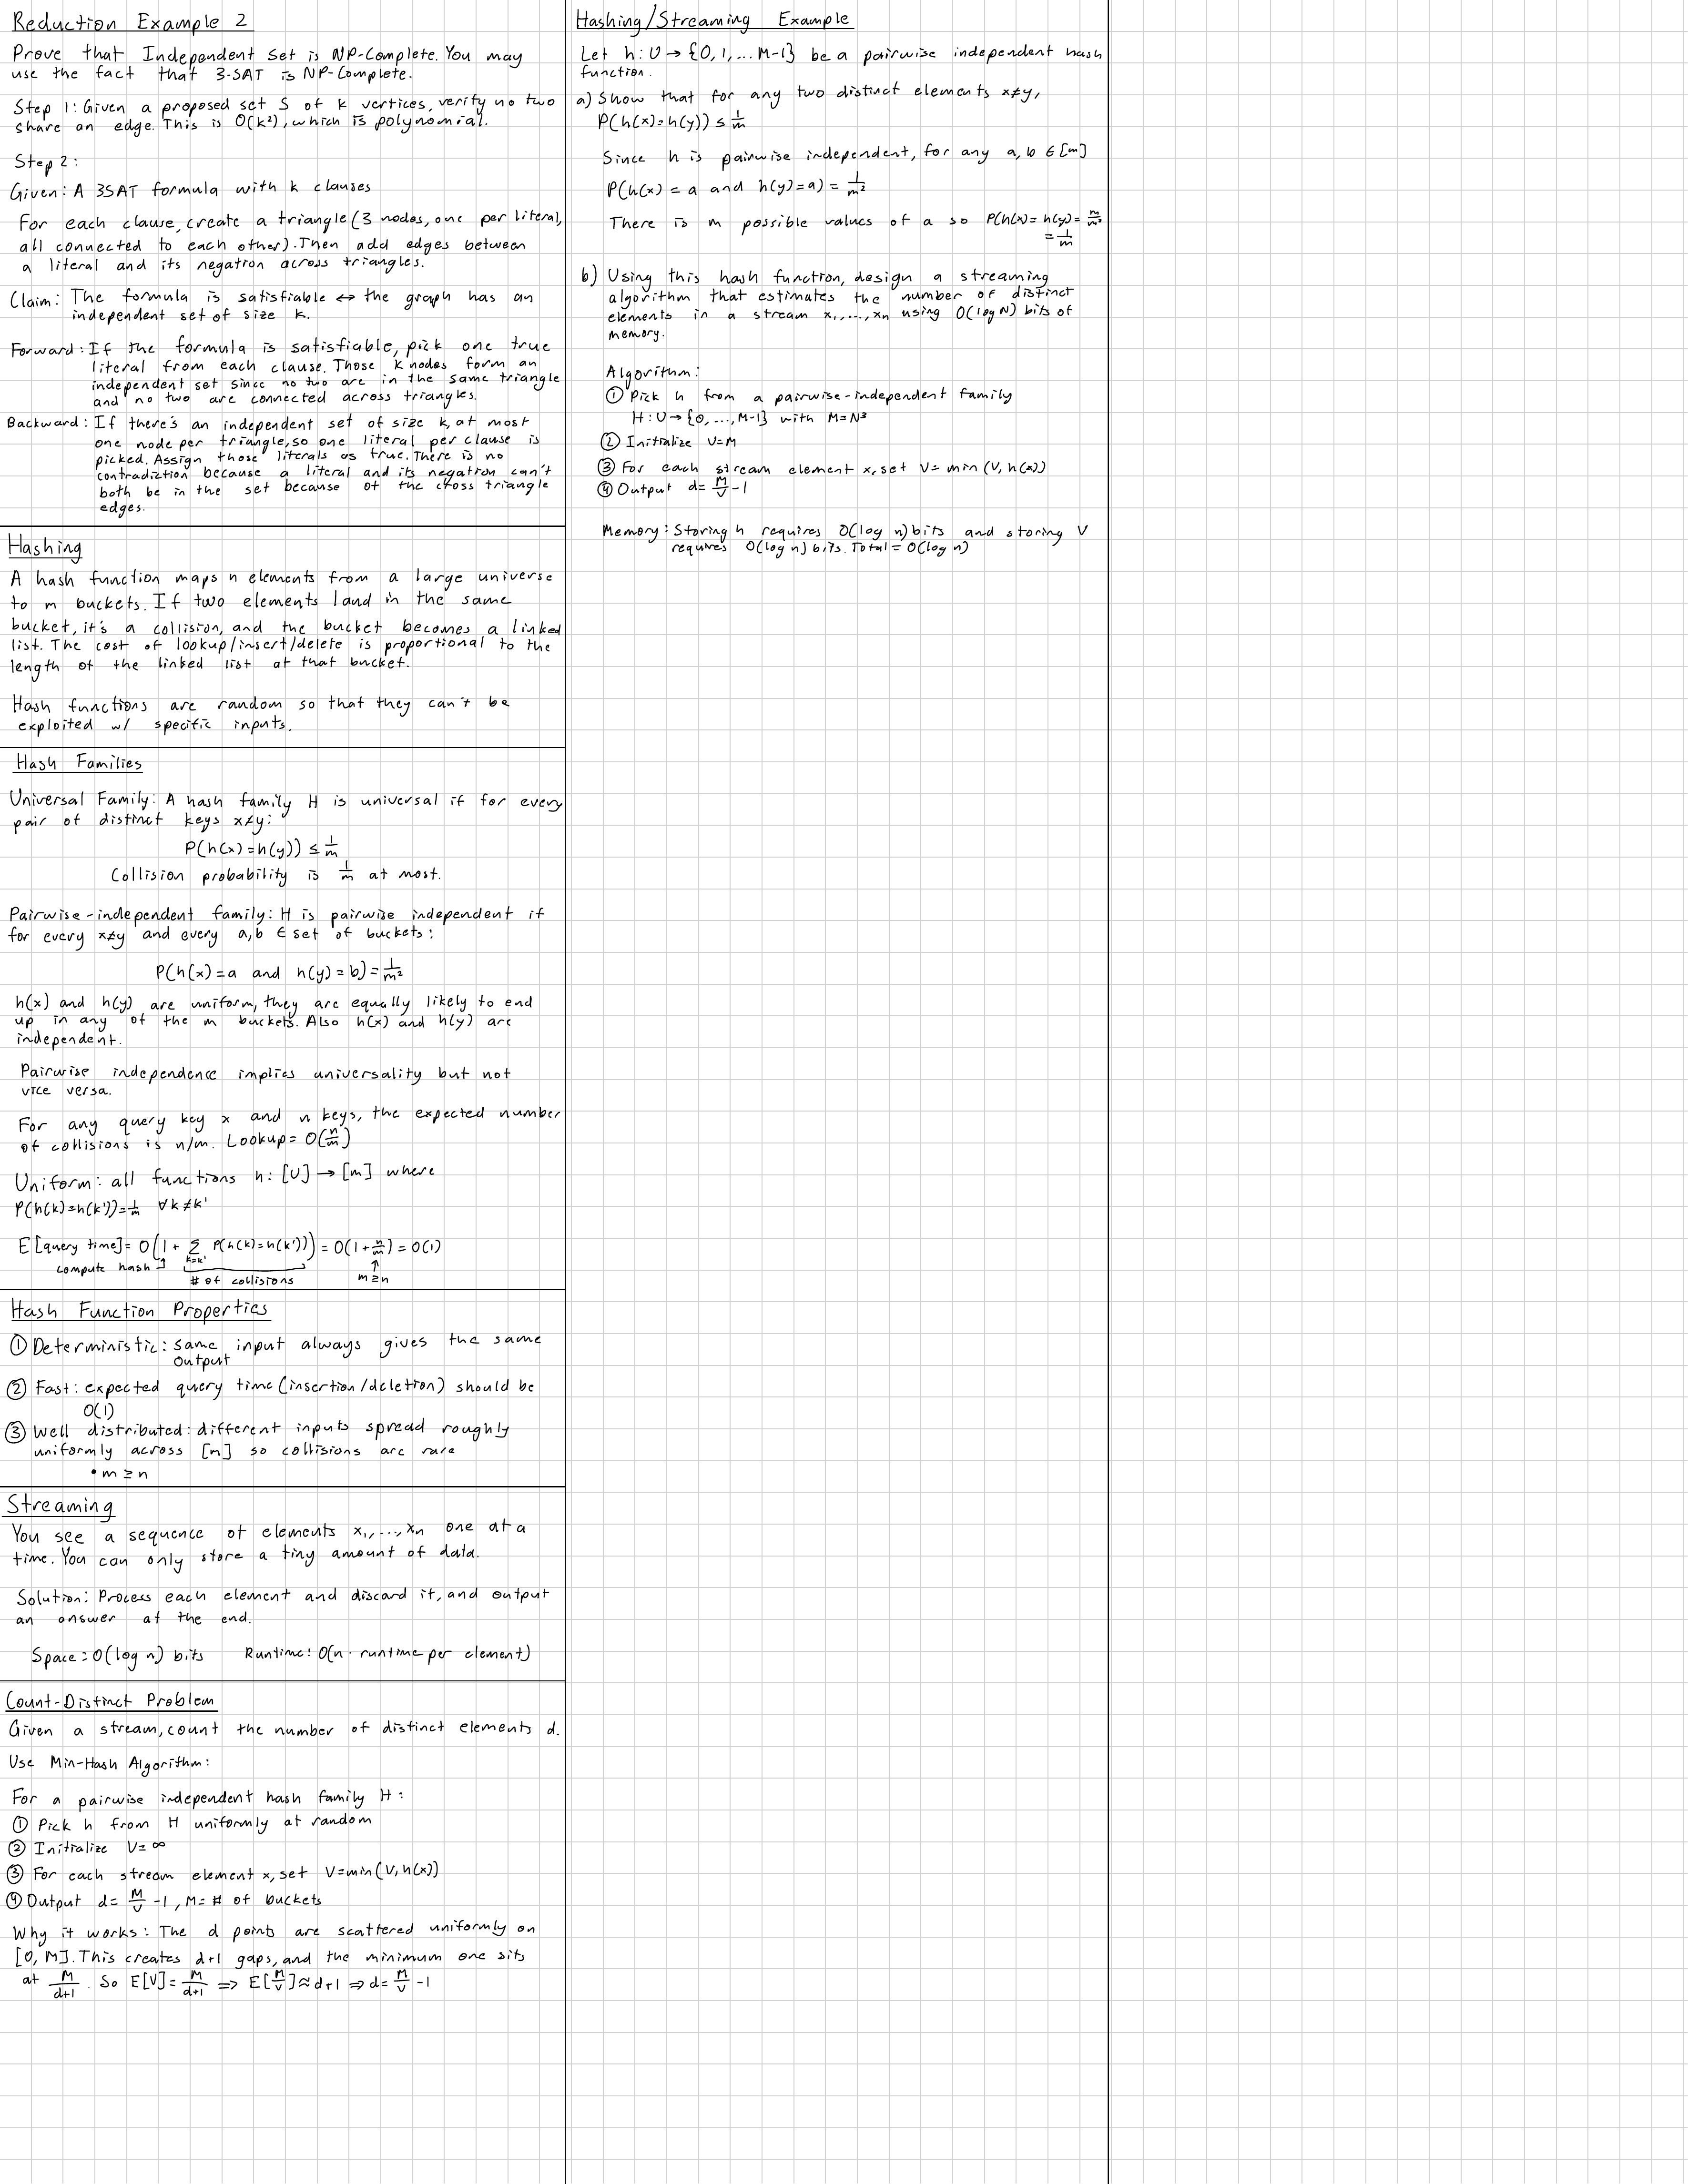 Reduction Example 2
Prove that Independent Set is NP-Complete. You may
use the fact that 3-SAT is NP-Complete.
Step 1: Given a proposed set S of k vertices, verify no two
share an edge. This is O(k²), which is polynomial.
Step 2:
Given: A 3SAT formula with k clauses
For each clause, create a triangle (3 nodes, one per literal,
all connected to each other). Then add edges between
a literal and its negation across triangles.
Claim: The formula is satisfiable ↔ the graph has an
independent set of size k.
Forward: If the formula is satisfiable, pick one true
literal from each clause. Those k nodes form an
independent set since no two are in the same triangle
and no two are connected across triangles.
Backward: If there's an independent set of size k, at most
one node per triangle, so one literal per clause is
picked. Assign those literals as true. There is no
contradiction because a literal and its negation can't
both be in the set because of the cross triangle
edges.
Hashing
A hash function maps n elements from a large universe
to m buckets. If two elements land in the same
bucket, it's a collision, and the bucket becomes a linked
list. The cost of lookup/insert/delete is proportional to the
length of the linked list at that bucket.
Hash functions are random so that they can't be
exploited w/ specific inputs.
Hash Families
Universal Family: A hash family H is universal if for every
pair of distinct keys x≠y:
P(h(x)=h(y)) ≤ 1/m
Collision probability is 1/m at most.
Pairwise-independent family: H is pairwise independent if
for every x≠y and every a,b ∈ set of buckets:
P(h(x)=a and h(y)=b)=1/m²
h(x) and h(y) are uniform, they are equally likely to end
up in any of the m buckets. Also h(x) and h(y) are
independent.
Pairwise independence implies universality but not
vice versa.
For any query key x and n keys, the expected number
of collisions is n/m. Lookup= O(n/m)
Uniform: all functions h: [U] → [m] where
P(h(k)=h(k'))=1/m ∀k≠k'
E[query time]= O(1 + Σ P(h(k)=h(k'))) = O(1+n/m) = O(1)
compute hash ↑ # of collisions ↑ m≥n
Hash Function Properties
① Deterministic: same input always gives the same
output
② Fast: expected query time (insertion/deletion) should be
O(1)
③ Well distributed: different inputs spread roughly
uniformly across [m] so collisions are rare
• m ≥ n
Streaming
You see a sequence of elements x₁,...,xₙ one at a
time. You can only store a tiny amount of data.
Solution: Process each element and discard it, and output
an answer at the end.
Space: O(log n) bits Runtime: O(n · runtime per element)
Count-Distinct Problem
Given a stream, count the number of distinct elements d.
Use Min-Hash Algorithm:
For a pairwise independent hash family H:
① Pick h from H uniformly at random
② Initialize V=∞
③ For each stream element x, set V=min(V, h(x))
④ Output d= M/V -1, M= # of buckets
Why it works: The d points are scattered uniformly on
[0, M]. This creates d+1 gaps, and the minimum one sits
at M/(d+1). So E[V]= M/(d+1) ⇒ E[M/V]≈d+1 ⇒ d= M/V -1
Hashing/Streaming Example
Let h: U → {0, 1, ... M-1} be a pairwise independent hash
function.
a) Show that for any two distinct elements x≠y,
P(h(x)=h(y)) ≤ 1/m
Since h is pairwise independent, for any a, b ∈ [m]
P(h(x) = a and h(y)=a) = 1/m²
There is m possible values of a so P(h(x)=h(y)= m/m²
= 1/m
b) Using this hash function, design a streaming
algorithm that estimates the number of distinct
elements in a stream x₁,...,xₙ using O(log N) bits of
memory.
Algorithm:
① Pick h from a pairwise-independent family
H: U → {0, ..., M-1} with M=N³
② Initialize V=M
③ For each stream element x, set V= min (V, h(x))
④ Output d= M/V -1
Memory: Storing h requires O(log n) bits and storing V
requires O(log n) bits. Total = O(log n)